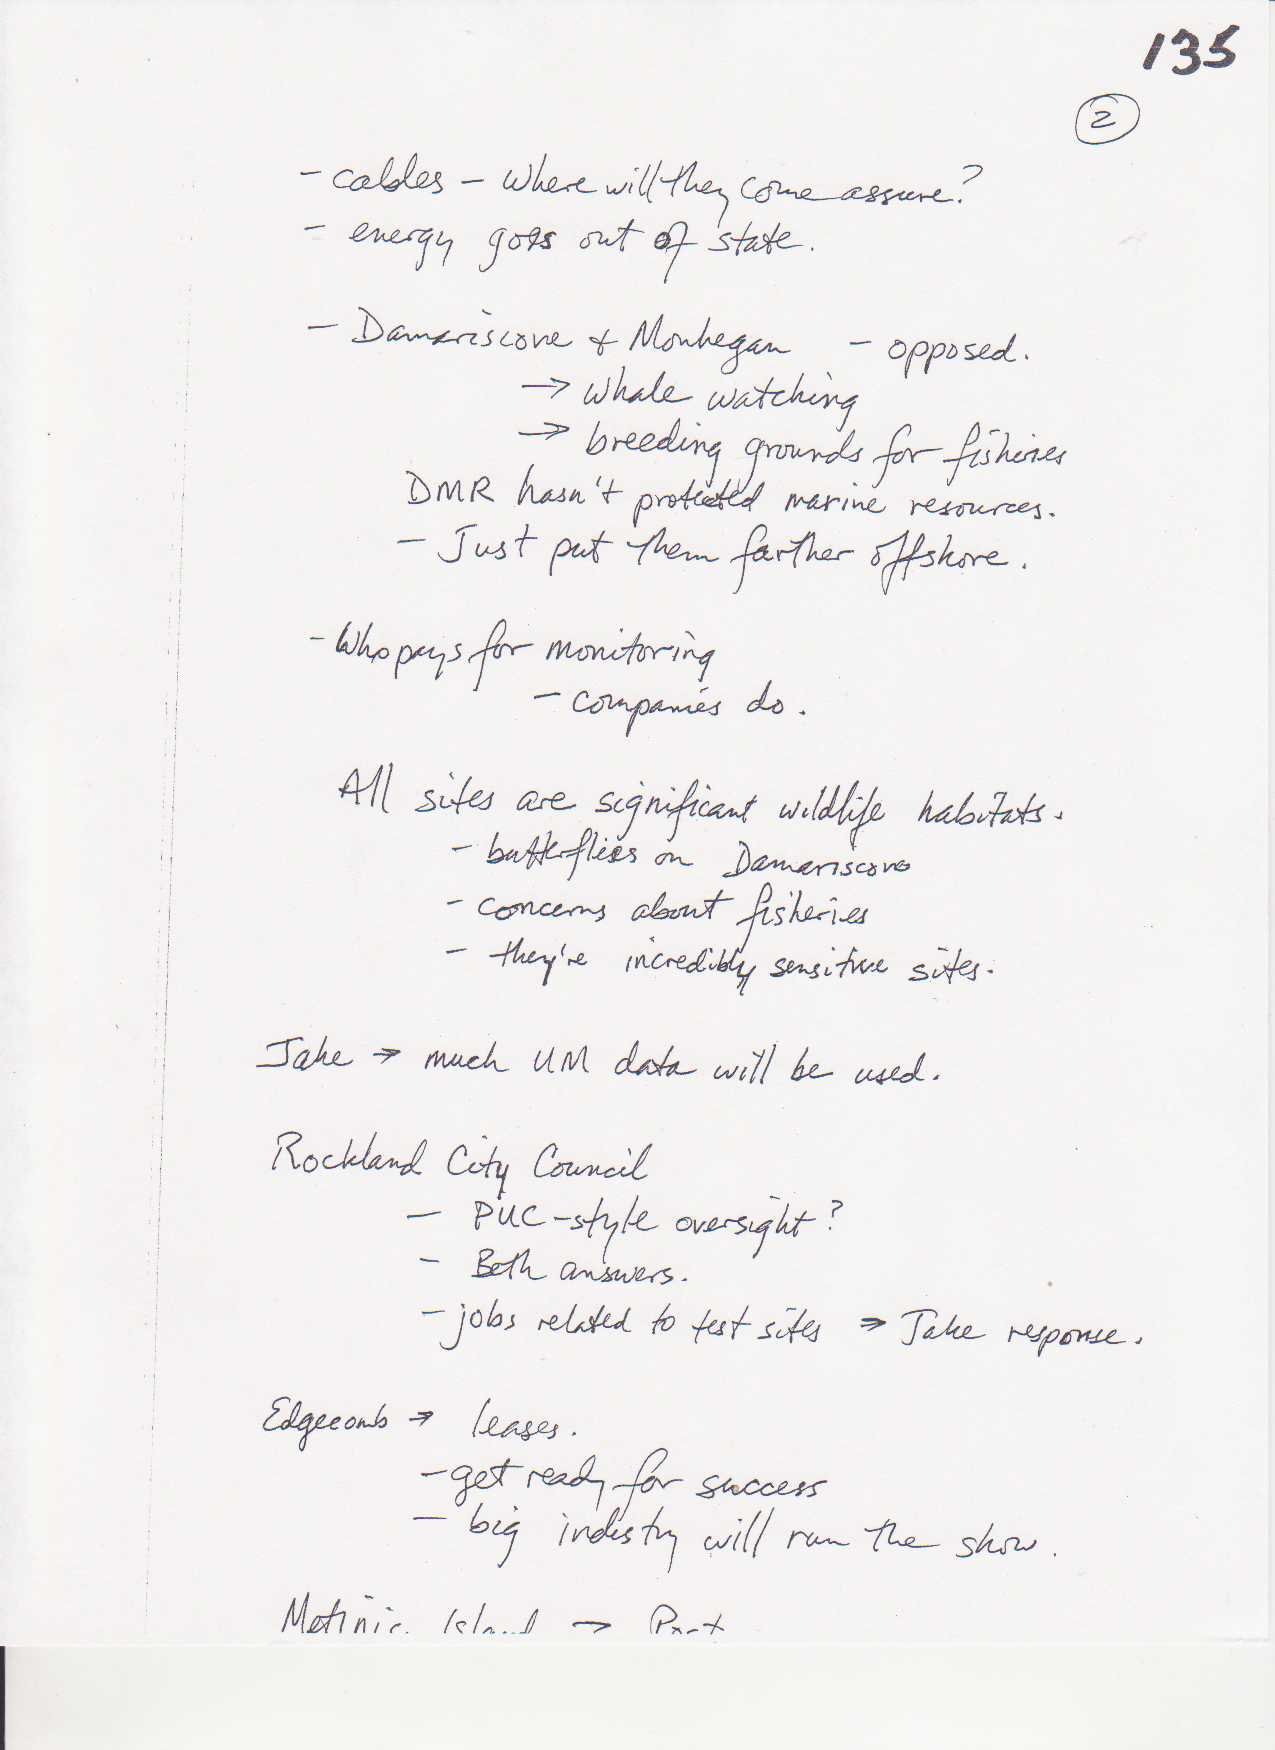 135
2
- cables - where will they come assure?
- energy goes out of state.
- Damariscove & Monhegan - opposed.
→ whale watching
→ breeding grounds for fisheries
DMR hasn't protected marine resources.
- Just put them farther offshore.
- Who pays for monitoring
- companies do.
All sites are significant wildlife habitats.
- butterflies on Damariscove
- concerns about fisheries
- they're incredibly sensitive sites.
Jake → much UM data will be used.
Rockland City Council
- PUC-style oversight?
- Beth answers.
- jobs related to test sites → Jake response.
Edgecomb → leases.
- get ready for success
- big industry will run the show.
Metinic Island →